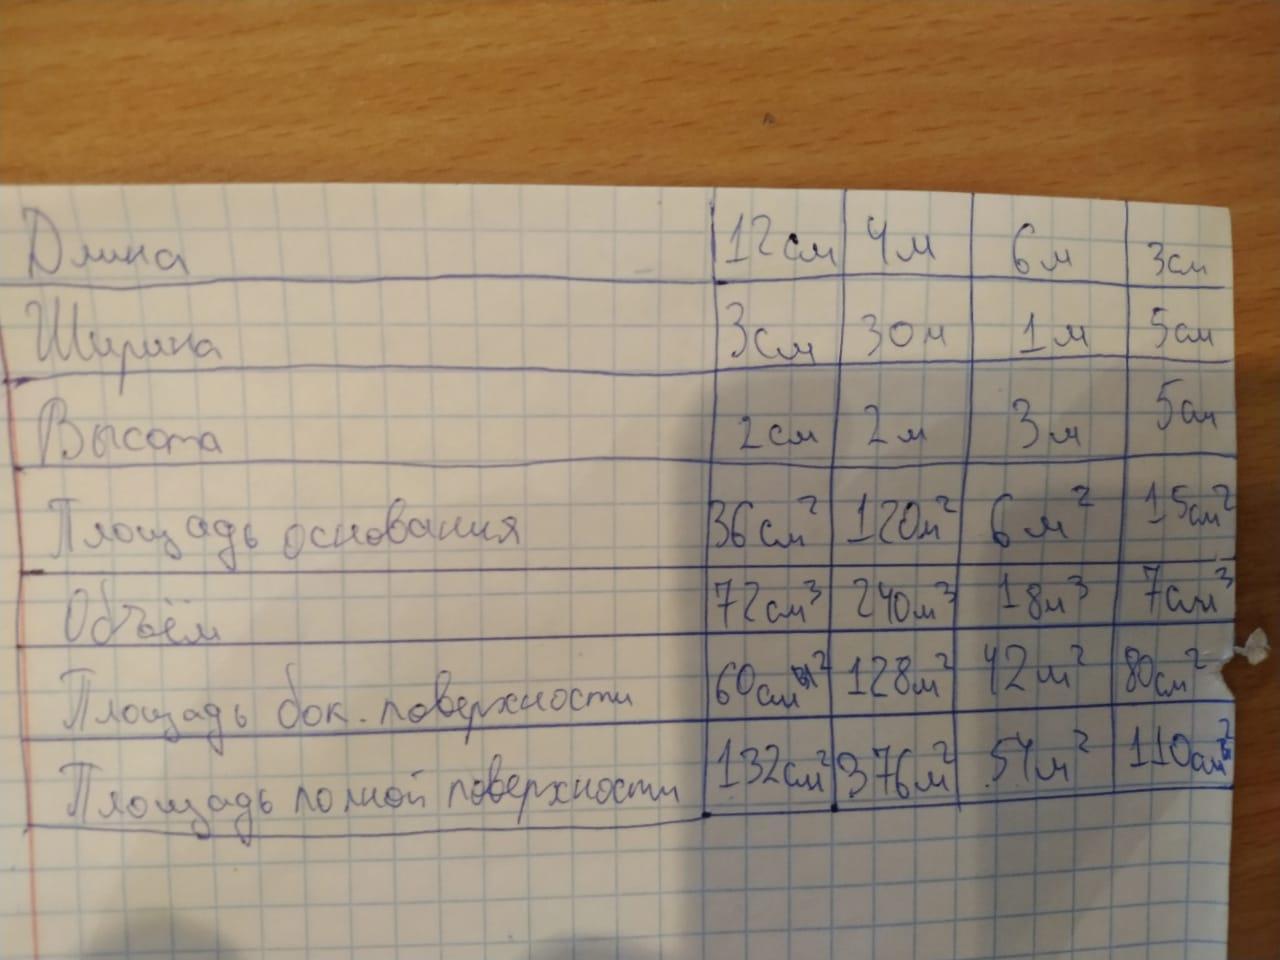 Длина 12см 4м 6м 3см
Ширина 3см 30м 1м 5см
Высота 2см 2м 3м 5см
Площадь основания 36см² 120м² 6м² 15см²
Объём 72см³ 240м³ 18м³ 7см³
Площадь бок. поверхности 60см² 128м² 42м² 80см²
Площадь полной поверхности 132см² 376м² 54м² 110см²